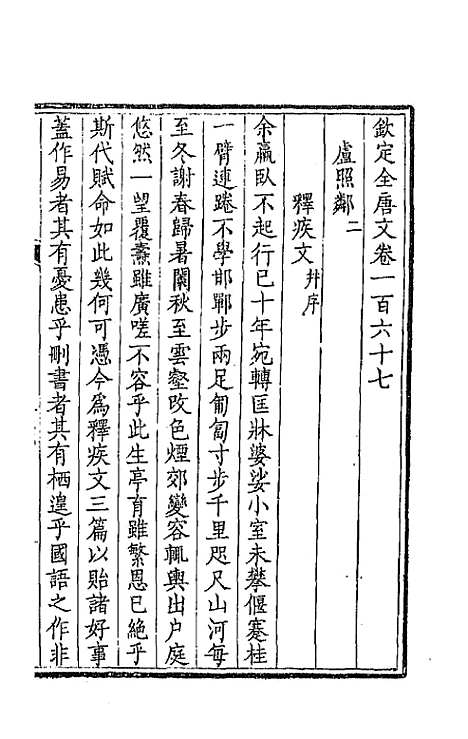 欽定全唐文卷一百六十七
盧照鄰二
釋疾文并序
余羸臥不起行已十年宛轉匡牀婆娑小室未攀偃蹇桂
一臂連踡不學邯鄲步兩足匍匐寸步千里咫尺山河每
至冬謝春歸暑闌秋至雲壑改色煙郊變容輒輿出户庭
悠然一望覆燾雖廣嗟不容乎此生亭育雖繁恩已絶乎
斯代賦命如此幾何可憑今爲釋疾文三篇以貽諸好事
蓋作易者其有憂患乎刪書者其有栖遑乎國語之作非